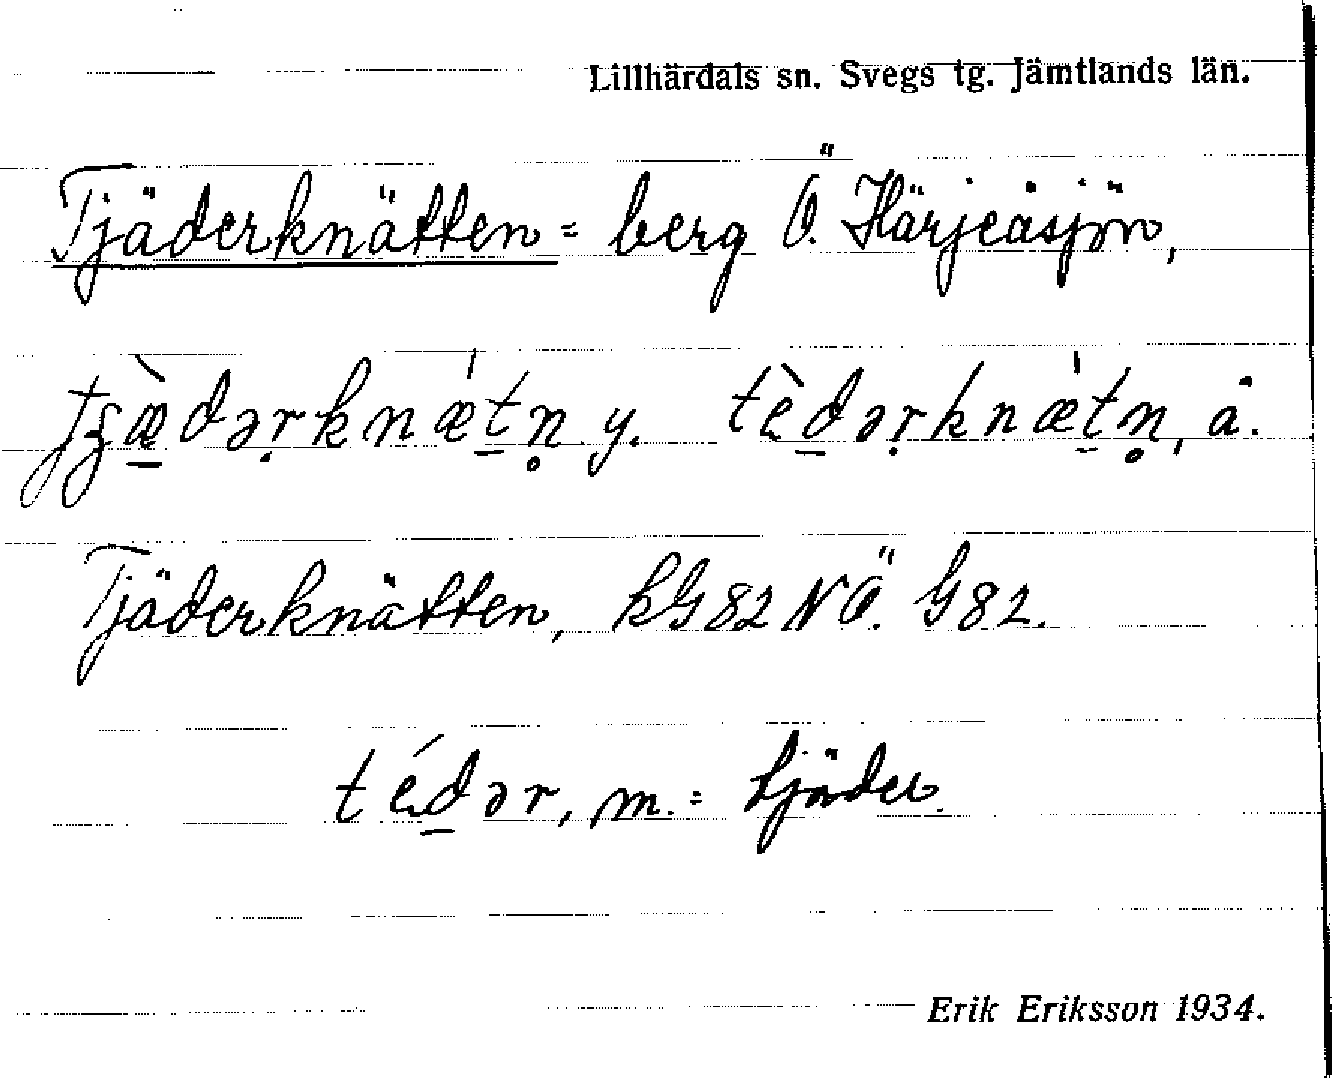 Lillhärdals sn. Svegs tg. Jämtlands län.
Tjäderknätten = berg Ö. Härjeåsjön,
tʒæ̀dərknǽtn̥ y. tèdərknǽtn̥, å.
Tjäderknätten, kG82 NÖ. G82.
tédər, m. = tjäder.
Erik Eriksson 1934.